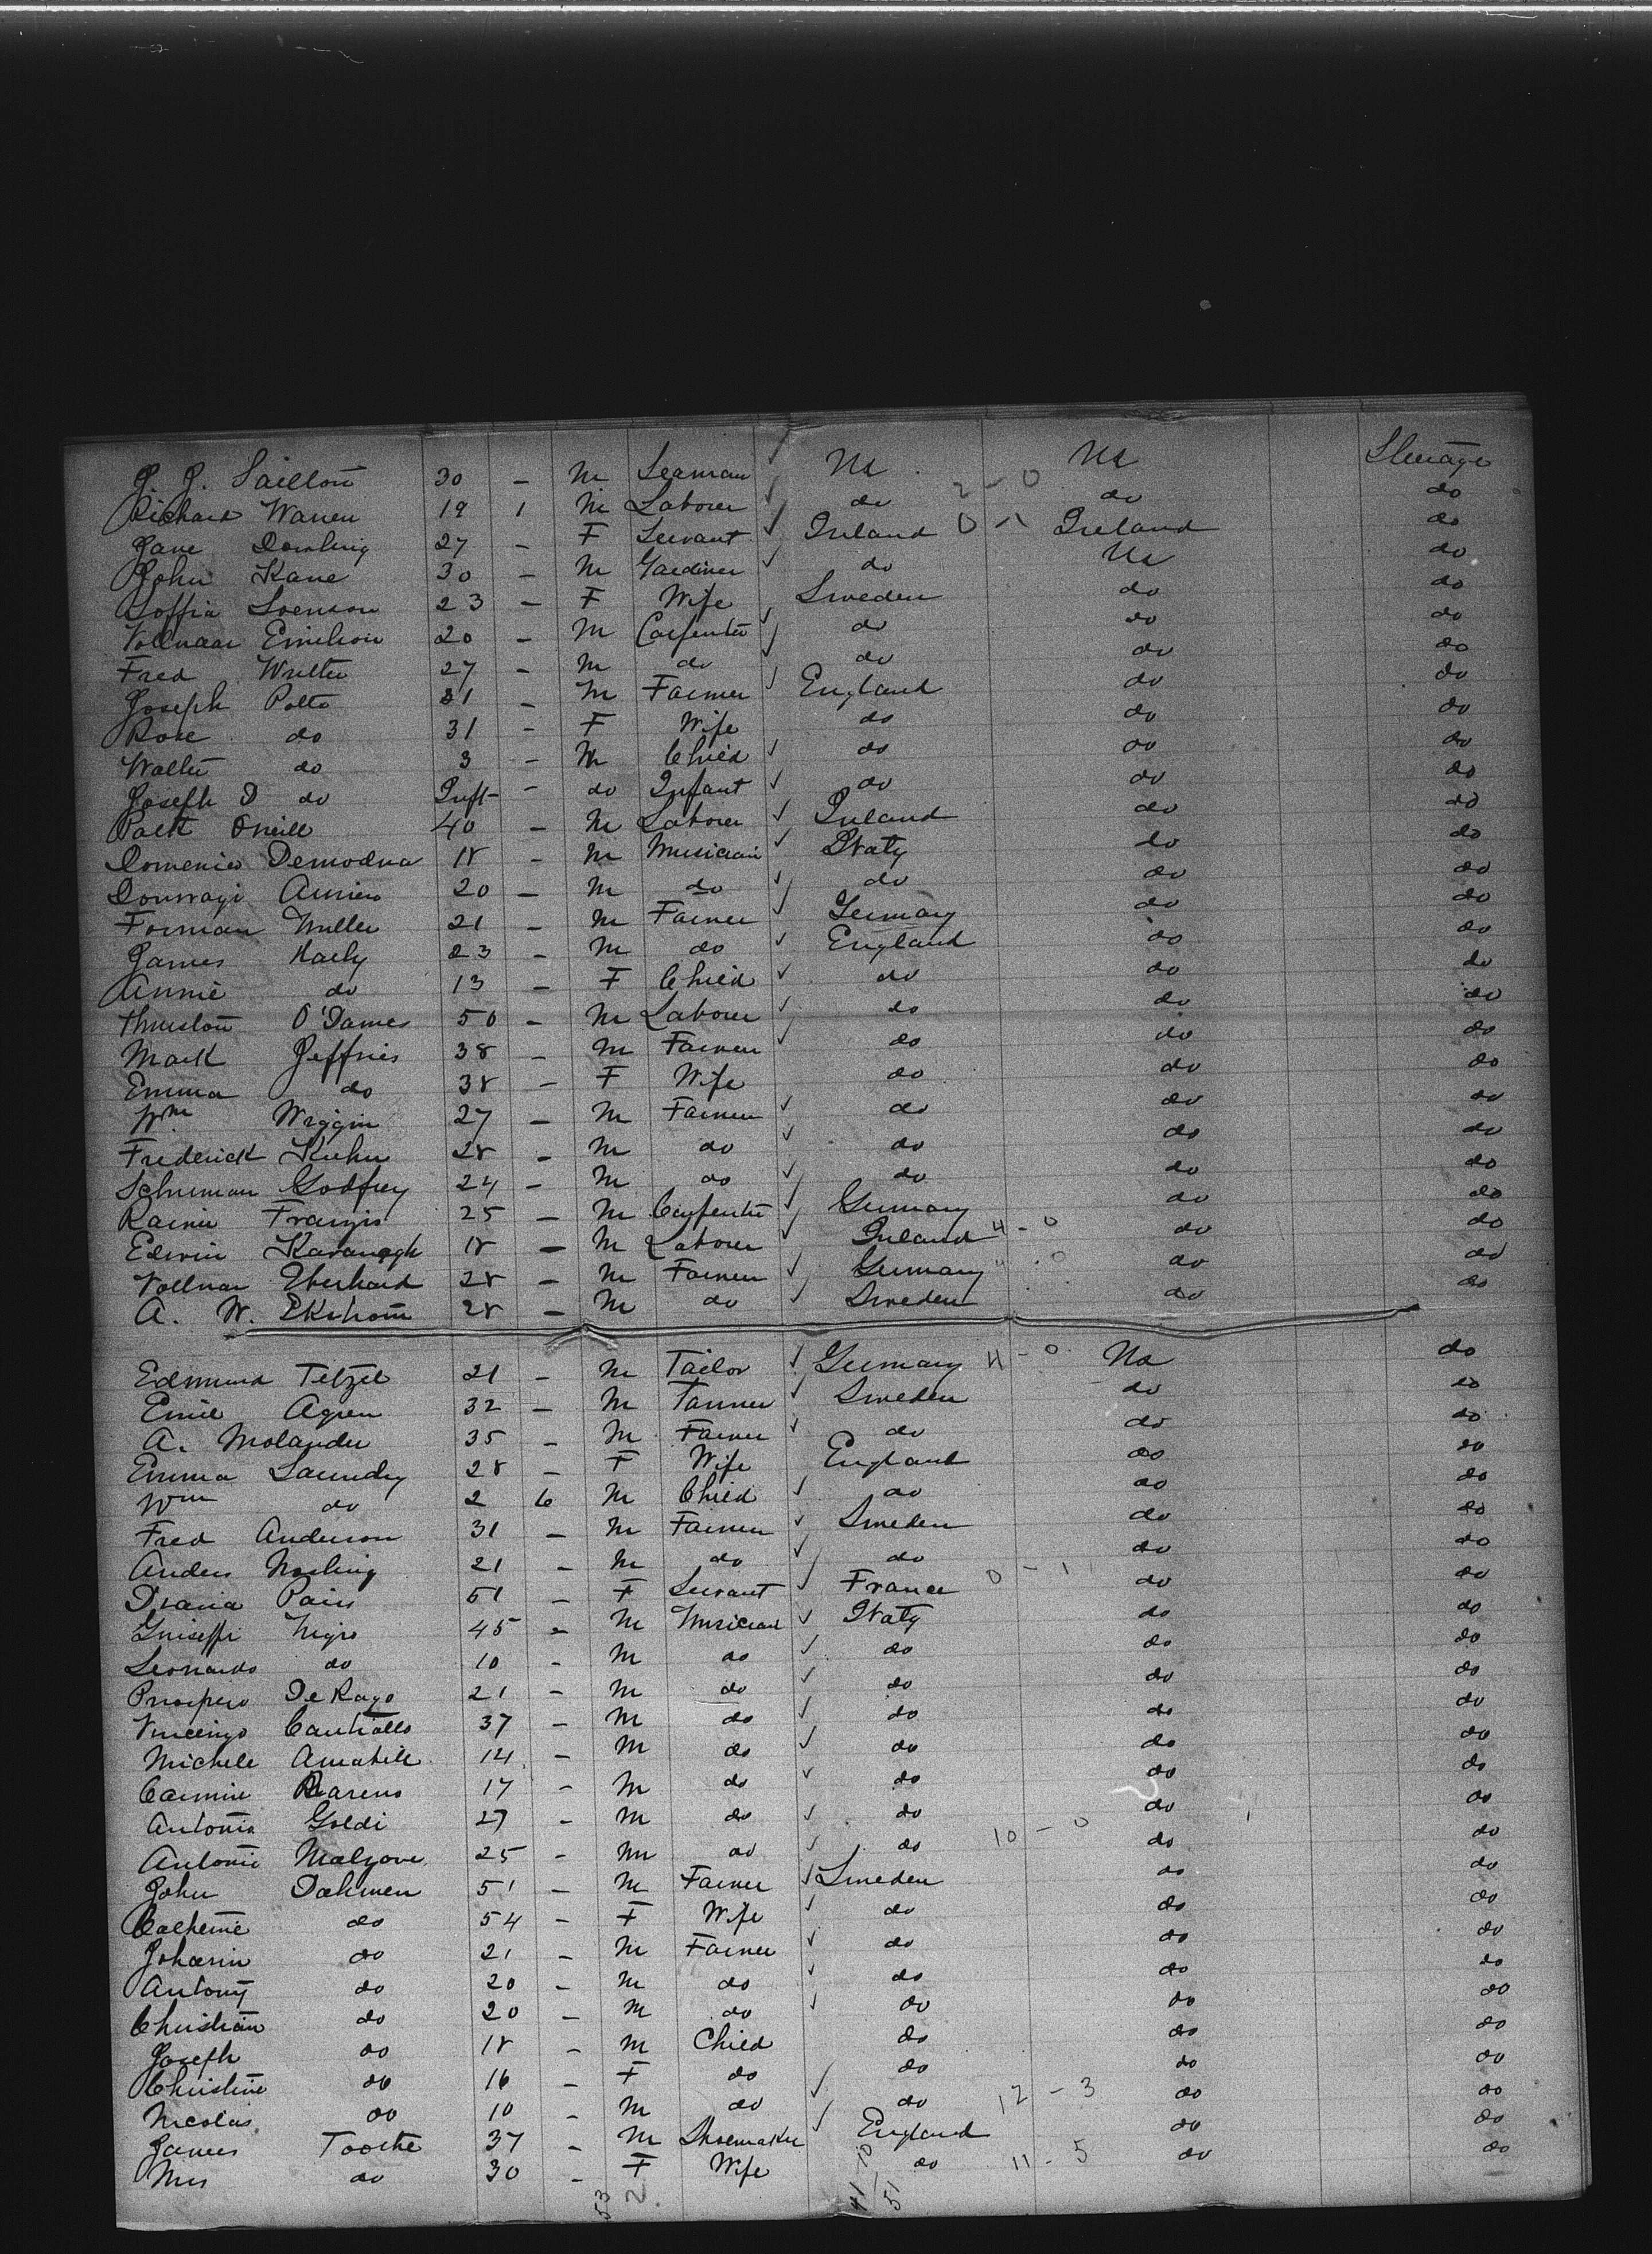 J. J. Saillon 30 - M Seaman ✓ Us Us Steerage
2 - 0
Richard Warren 19 1 M Laborer ✓ do do do
Jane Dowling 27 - F Servant ✓ Ireland 0 - 1 Ireland do
John Kane 30 - M Gardiner ✓ do Us do
Soffia Svenson 23 - F Wife Sweden do do
Vollmaar Emilson 20 - M Carpenter ✓ do do do
Fred 27 - M do ✓ do do do
Joseph Potts 31 - M Farmer ✓ England do do
Rose do 31 - F Wife do do do
Walter do 3 - M Child ✓ do do do
Joseph D do Inft - do Infant ✓ do do do
Patk Oneill 40 - M Laborer ✓ Ireland do do
Domenico Demodna 18 - M Musician ✓ Italy do do
20 - M do ✓ do do do
Forman Muller 21 - M Farmer ✓ Germany do do
James Kaely 23 - M do ✓ England do do
Annie do 13 - F Child ✓ do do do
Thurston O'Dames 50 - M Laborer ✓ do do do
Mark Jeffries 38 - M Farmer ✓ do do do
Emma do 38 - F Wife do do do
Wm Wiggin 27 - M Farmer ✓ do do do
Frederick Kuhn 28 - M do ✓ do do do
Schuman Godfrey 24 - M do ✓ do do do
Rainer Franzis 25 - M Carpenter ✓ Germany do do
Edwin Kavanagh 18 - M Laborer ✓ Ireland 4 - 0 do do
Vollmar Eberhard 28 - M Farmer ✓ Germany 0 do do
A. W. Ekstrom 28 - M do ✓ Sweden do do
Edmund Tetzel 21 - M Tailor ✓ Germany 4 - 0 Us do
Emil Agren 32 - M Tanner ✓ Sweden do do
A. Molander 35 - M Farmer ✓ do do do
Emma Saundry 28 - F Wife England do do
Wm do 2 6 M Child ✓ do do do
Fred Anderson 31 - M Farmer ✓ Sweden do do
Anders 21 - M do ✓ do do do
Paris 51 - F Servant ✓ France 0 - 1 do do
Guiseppi Nigro 45 - M Musician ✓ Italy do do
Leonardo do 10 - M do ✓ do do do
Prospero De Rago 21 - M do ✓ do do do
Vincenzo 37 - M do ✓ do do do
Michele Amabile 14 - M do ✓ do do do
Carmine 17 - M do ✓ do do do
Antonio Goldi 27 - M do ✓ do do do
Antonio 25 - M do ✓ do 10 - 0 do do
John Dahmen 51 - M Farmer ✓ Sweden do do
Catherine do 54 - F Wife ✓ do do do
Johann do 21 - M Farmer ✓ do do do
Antony do 20 - M do ✓ do do do
Christian do 20 - M do ✓ do do do
Joseph do 18 - M Child do do do
Christine do 16 - F do do do do
Nicolas do 10 - M do ✓ do 12 - 3 do do
James Toothe 37 - M Shoemaker ✓ England do do
Mrs do 30 - F Wife do 11 - 5 do do
53 2
41 10
51